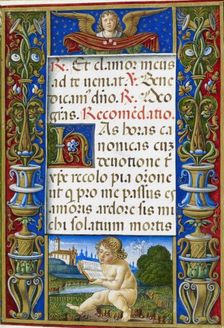 R. Et clamor meus
ad te veniat. V. Bene
dicamus dño. R. Deo
gr̃as. Recomẽdatio.
Has horas ca
nonicas cuz
deuotione t
xp̃e recolo pia orone
ut q pro me passus es
amoris ardore sis mi
chi solatium mortis